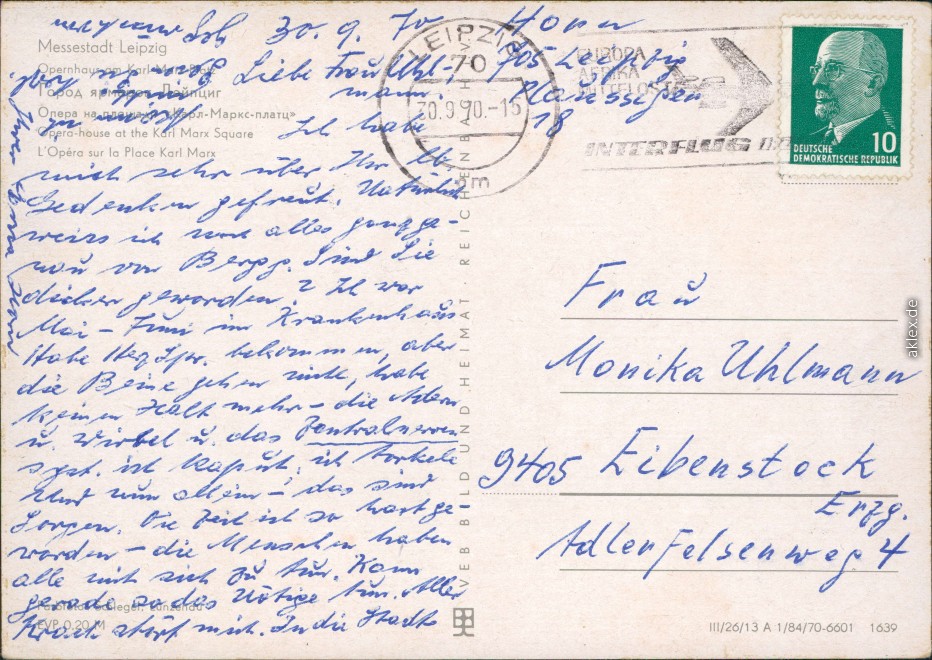 30. 9. 70
Horn
705 Leipzig
Plaussiger
18
Messestadt Leipzig
Opernhaus am Karl-Marx-Platz
Город ярмарок Лейпциг
Опера на площади «Карл-Маркс-платц»
Opera-house at the Karl Marx Square
L'Opéra sur la Place Karl Marx
Liebe Frau Uhl-
mann.
Ich habe
mich sehr über Ihr lb.
Gedenken gefreut. Natürlich
weiss ich noch alles ganz ge-
nau von Sind Sie
dicker geworden? Ich war
Mai - Juni im Krankenhaus
Habe bekommen, aber
die Beine gehen nicht, habe
keinen Halt mehr - die Adern
u. Wirbel u. das Zentralnerven
syst. ist kaput, ich torkele
Und nun allein - das sind
Sorgen. Die Zeit ist so hart ge-
worden - die Menschen haben
alle mit sich zu tun. Kann
gerade so das Nötige tun. Aller
Krach stört mich. In die Stadt
EVP 0,20 M
VEB BILD UND HEIMAT, REICHENBACH (V)
LEIPZIG
70
30.9.70-15
2m
EUROPA
AFRIKA
MITTELOST
INTERFLUG
DEUTSCHE
DEMOKRATISCHE REPUBLIK
10
Frau
Monika Uhlmann
9405 Eibenstock
Erzg.
Adlerfelsenweg 4
III/26/13 A 1/84/70-6601 1639
aklex.de